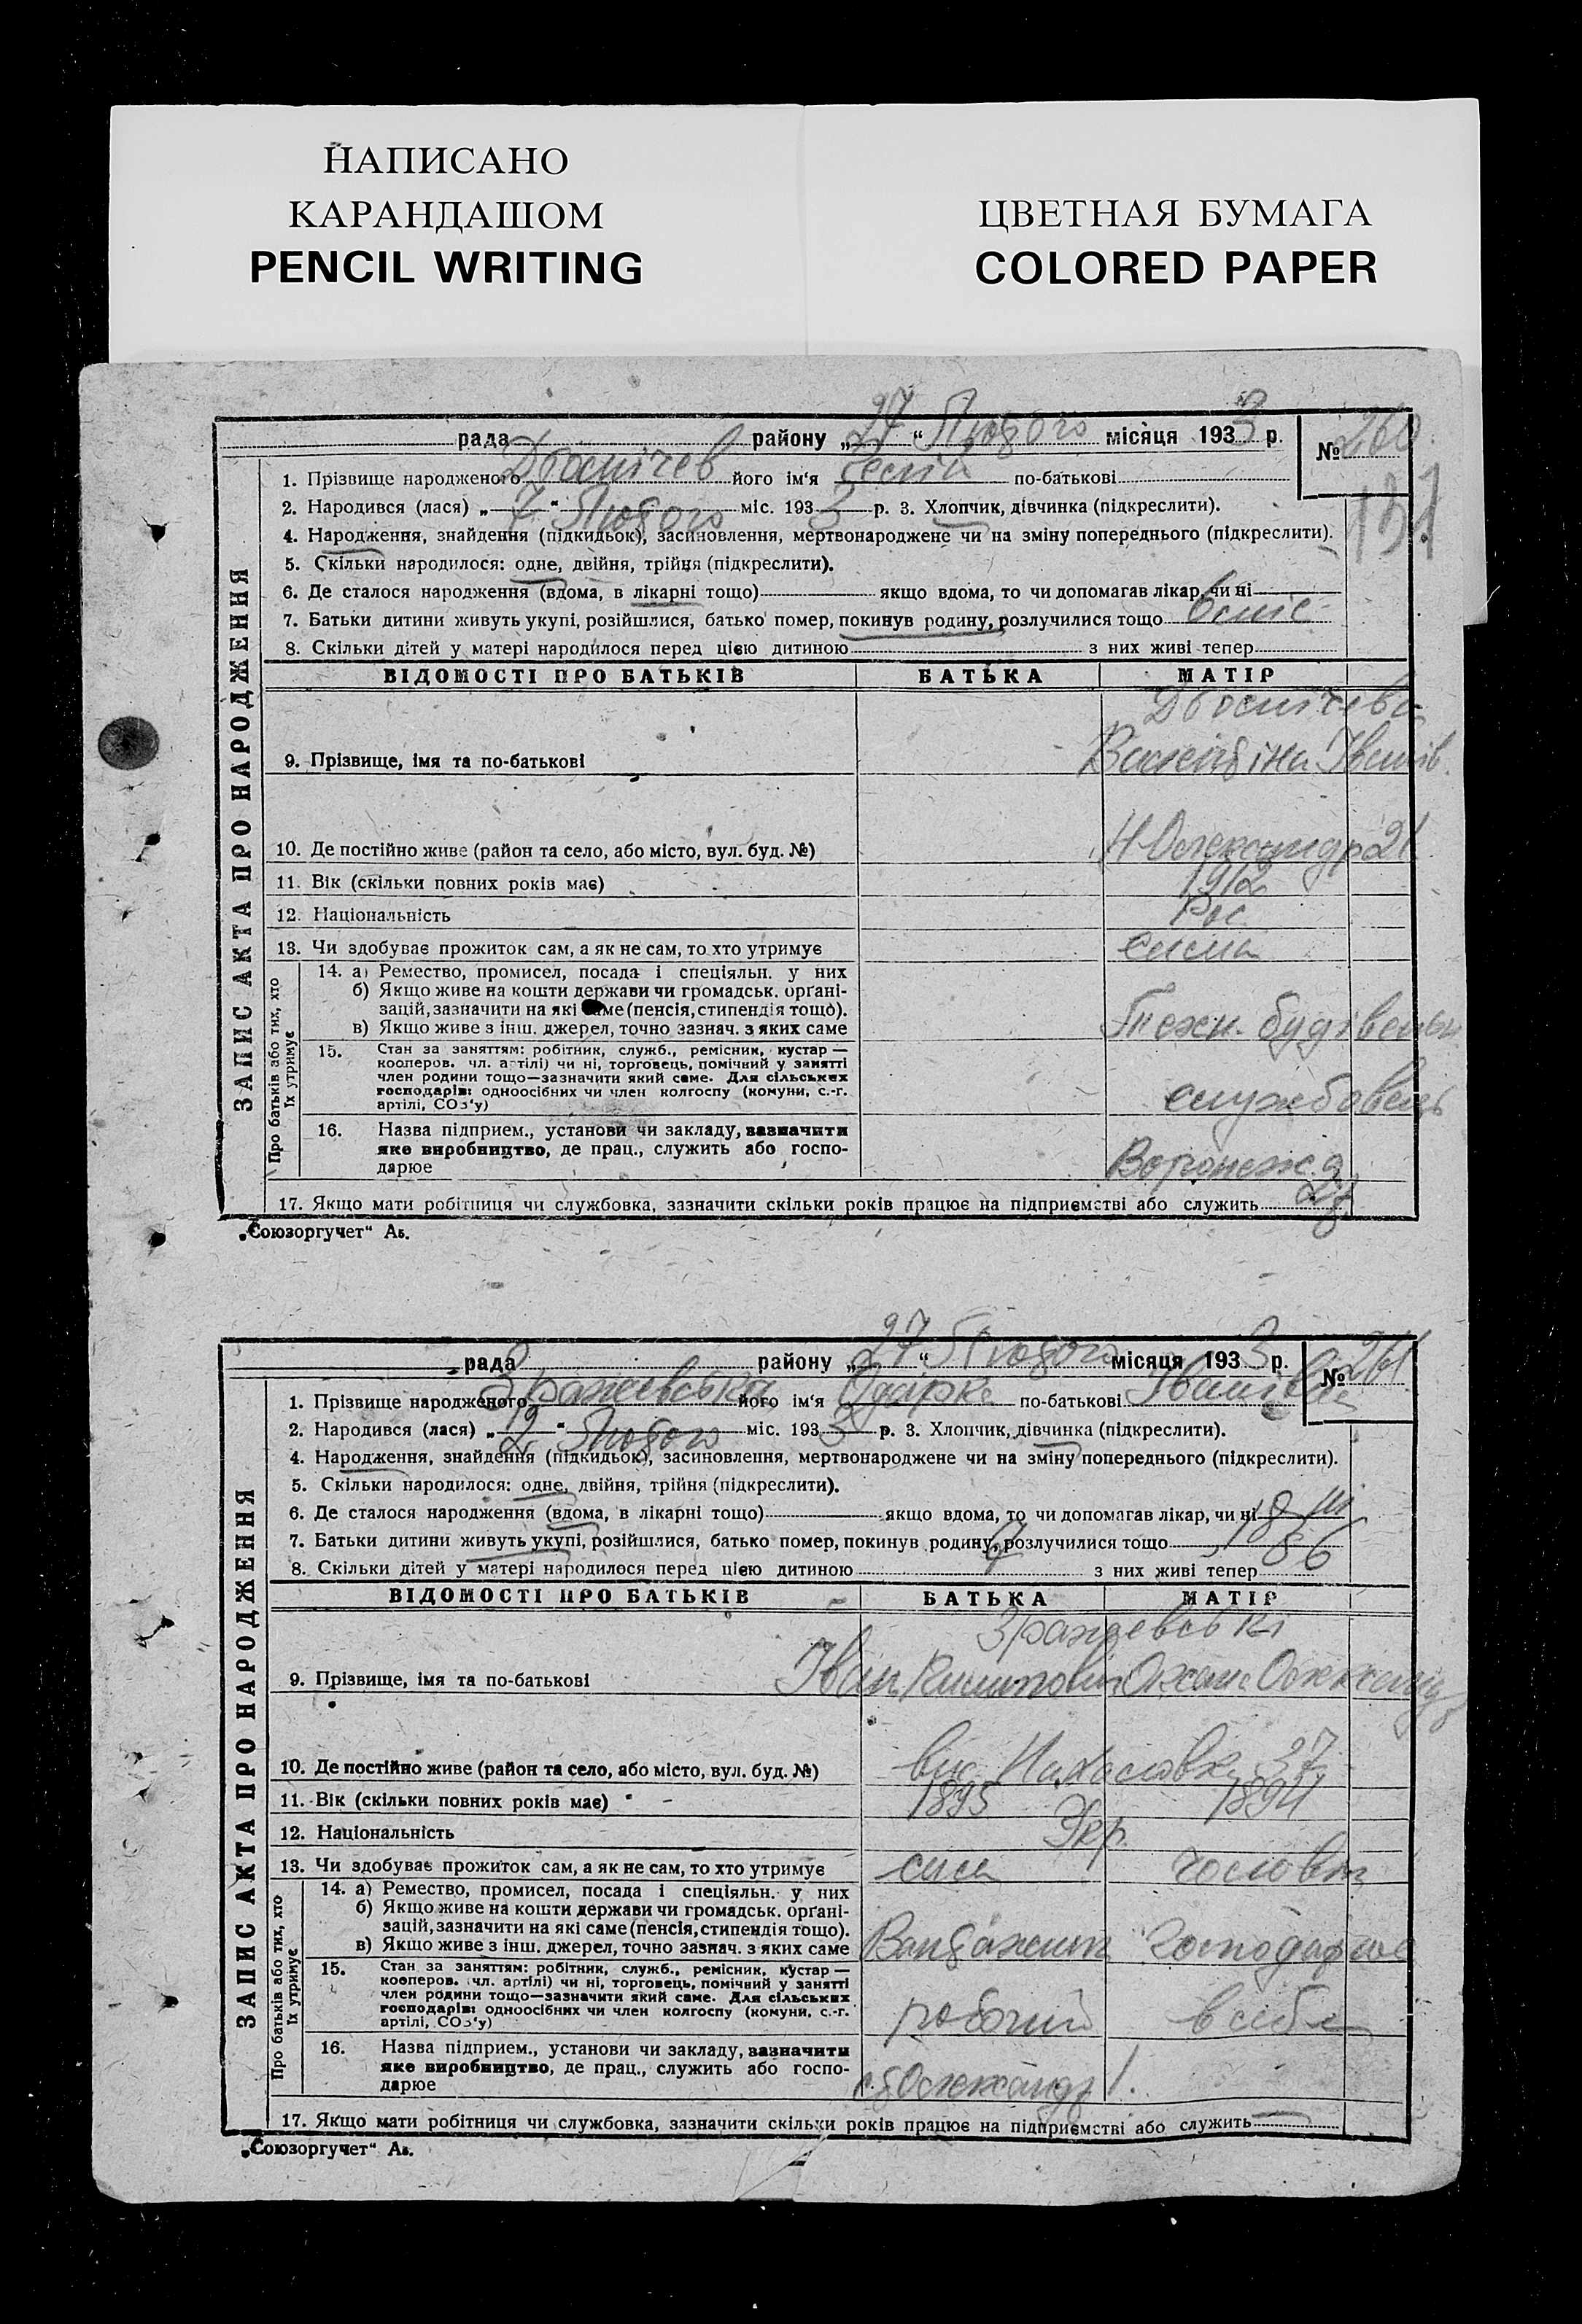 НАПИСАНО
КАРАНДАШОМ
PENCIL WRITING
ЦВЕТНАЯ БУМАГА
COLORED PAPER
ЗАПИС АКТА ПРО НАРОДЖЕННЯ
рада району „27“ Лютого місяця 1933 р. № 260
131
1. Прізвище народженого його ім‘я по-батькові
2. Народився (лася) „7“ Лютого міс. 1933 р. 3. Хлопчик, дівчинка (підкреслити).
4. Народження, знайдення (підкидьок), засиновлення, мертвонароджене чи на зміну попереднього (підкреслити).
5. Скільки народилося: одне, двійня, трійця (підкреслити).
6. Де сталося народження (вдома, в лікарні тощо) якщо вдома, то чи допомагав лікар, чи ні
7. Батьки дитини живуть укупі, розійшлися, батько помер, покинув родину, розлучилися тощо
8. Скільки дітей у матері народилося перед цією дитиною з них живі тепер
ВІДОМОСТІ ПРО БАТЬКІВ БАТЬКА МАТІР
9. Прізвище, імя та по-батькові Валентіна Іванів.
10. Де постійно живе (район та село, або місто, вул. буд. №) Н Олександр 21
11. Вік (скільки повних років має) 1912
12. Національність Рос.
13. Чи здобуває прожиток сам, а як не сам, то хто утримує сама
Про батьків або тих, хто їх утримує
14. а) Ремество, промисел, посада і спеціяльн. у них
б) Якщо живе на кошти держави чи громадськ. орґані-
зацій, зазначити на які саме (пенсія, стипендія тощо).
в) Якщо живе з інш. джерел, точно зазнач. з яких саме Техн. будівельн
15. Стан за заняттям: робітник, служб., ремісник, кустар —
кооперов. чл. артілі) чи ні, торговець, помічний у занятті
член родини тощо—зазначити який саме. Для сільських
господарів: одноосібних чи член колгоспу (комуни, с.-г.
артілі, СОз‘у) службовець
16. Назва підприєм., установи чи закладу, зазначити
яке виробництво, де прац., служить або госпо-
дарює Воронеж.
17. Якщо мати робітниця чи службовка, зазначити скільки років працює на підприємстві або служить
„Союзоргучет“ Ав.
ЗАПИС АКТА ПРО НАРОДЖЕННЯ
рада району „27“ Лютого місяця 1933 р. № 261
1. Прізвище народженого Зражевська його ім‘я Одарка по-батькові Іванівна
2. Народився (лася) „2“ Лютого міс. 1933 р. 3. Хлопчик, дівчинка (підкреслити).
4. Народження, знайдення (підкидьок), засиновлення, мертвонароджене чи на зміну попереднього (підкреслити).
5. Скільки народилося: одне, двійня, трійня (підкреслити).
6. Де сталося народження (вдома, в лікарні тощо) якщо вдома, то чи допомагав лікар, чи ні
7. Батьки дитини живуть укупі, розійшлися, батько помер, покинув родину, розлучилися тощо
8. Скільки дітей у матері народилося перед цією дитиною 7 з них живі тепер 6
ВІДОМОСТІ ПРО БАТЬКІВ БАТЬКА МАТІР
Зражевські
9. Прізвище, імя та по-батькові Іван
10. Де постійно живе (район та село, або місто, вул. буд. №) 37
11. Вік (скільки повних років має) 1895 1894
12. Національність Укр.
13. Чи здобуває прожиток сам, а як не сам, то хто утримує сам чоловік
Про батьків або тих, хто їх утримує
14. а) Ремество, промисел, посада і спеціяльн. у них
б) Якщо живе на кошти держави чи громадськ. орґані-
зацій, зазначити на які саме (пенсія, стипендія тощо).
в) Якщо живе з інш. джерел, точно зазнач. з яких саме Вантажник господарює
15. Стан за заняттям: робітник, служб., ремісник, кустар —
кооперов. чл. артілі) чи ні, торговець, помічний у занятті
член родини тощо—зазначити який саме. Для сільських
господарів: одноосібних чи член колгоспу (комуни, с.-г.
артілі, СОз‘у) робочий в себе
16. Назва підприєм., установи чи закладу, зазначити
яке виробництво, де прац., служить або госпо-
дарює
17. Якщо мати робітниця чи службовка, зазначити скільки років працює на підприємстві або служить
„Союзоргучет“ Ав.